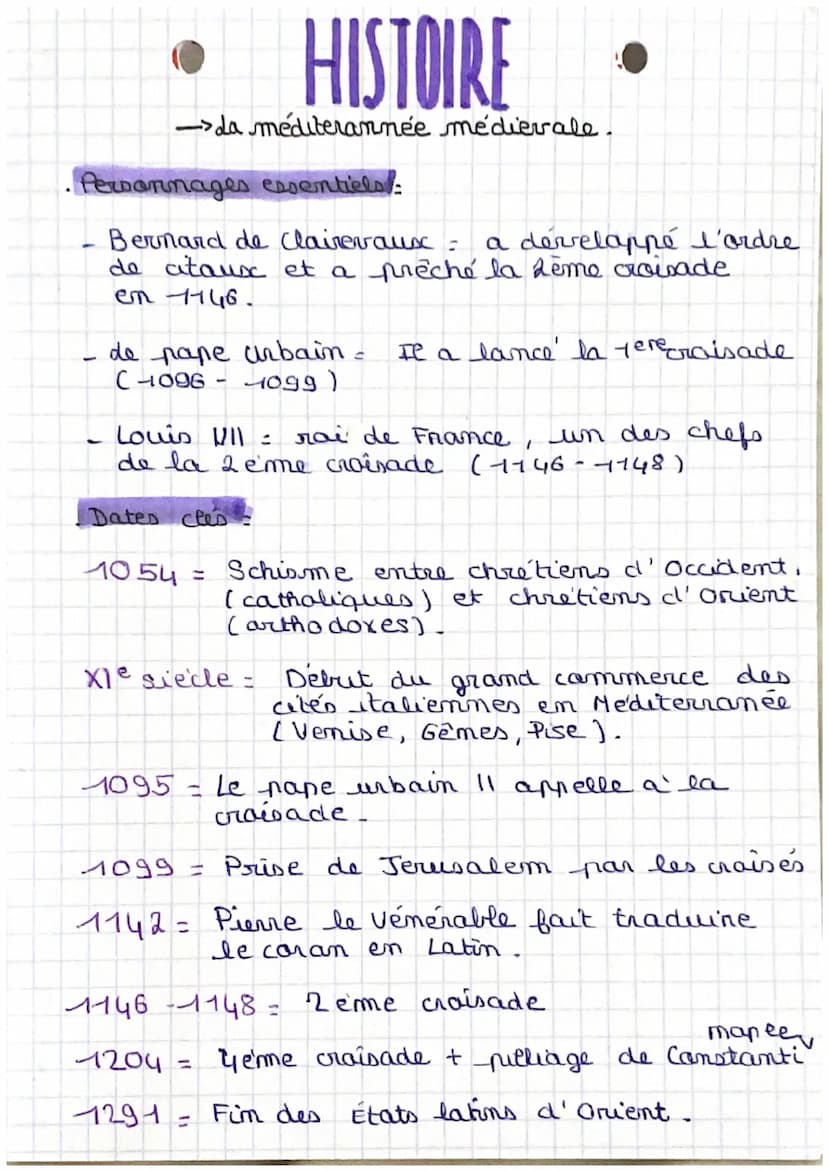 HISTOIRE
→ La méditerannée médievale.
. Personnages essentiels :
- Bernard de Clairevaux = a développé l'ordre
de citaux et a prêché la 2ème croisade
en 1146.
- Le pape Urbain = Il a lancé la 1ere croisade
(1096 - 1099)
- Louis VII = roi de France, un des chefs
de la 2ème croisade (1146 - 1148)
. Dates clés =
1054 = Schisme entre chrétiens d'Occident.
(catholiques) et chrétiens d'Orient
(orthodoxes).
XIe siècle = Début du grand commerce des
cités italiennes en Méditerranée
(Venise, Gênes, Pise).
1095 = Le pape urbain II appelle à la
croisade.
1099 = Prise de Jerusalem par les croisés
1142 = Pierre le Vénérable fait traduire
le coran en Latin.
1146 - 1148 = 2ème croisade
1204 = 4ème croisade + pilliage de Constanti
nople
1291 = Fin des États latins d'Orient.